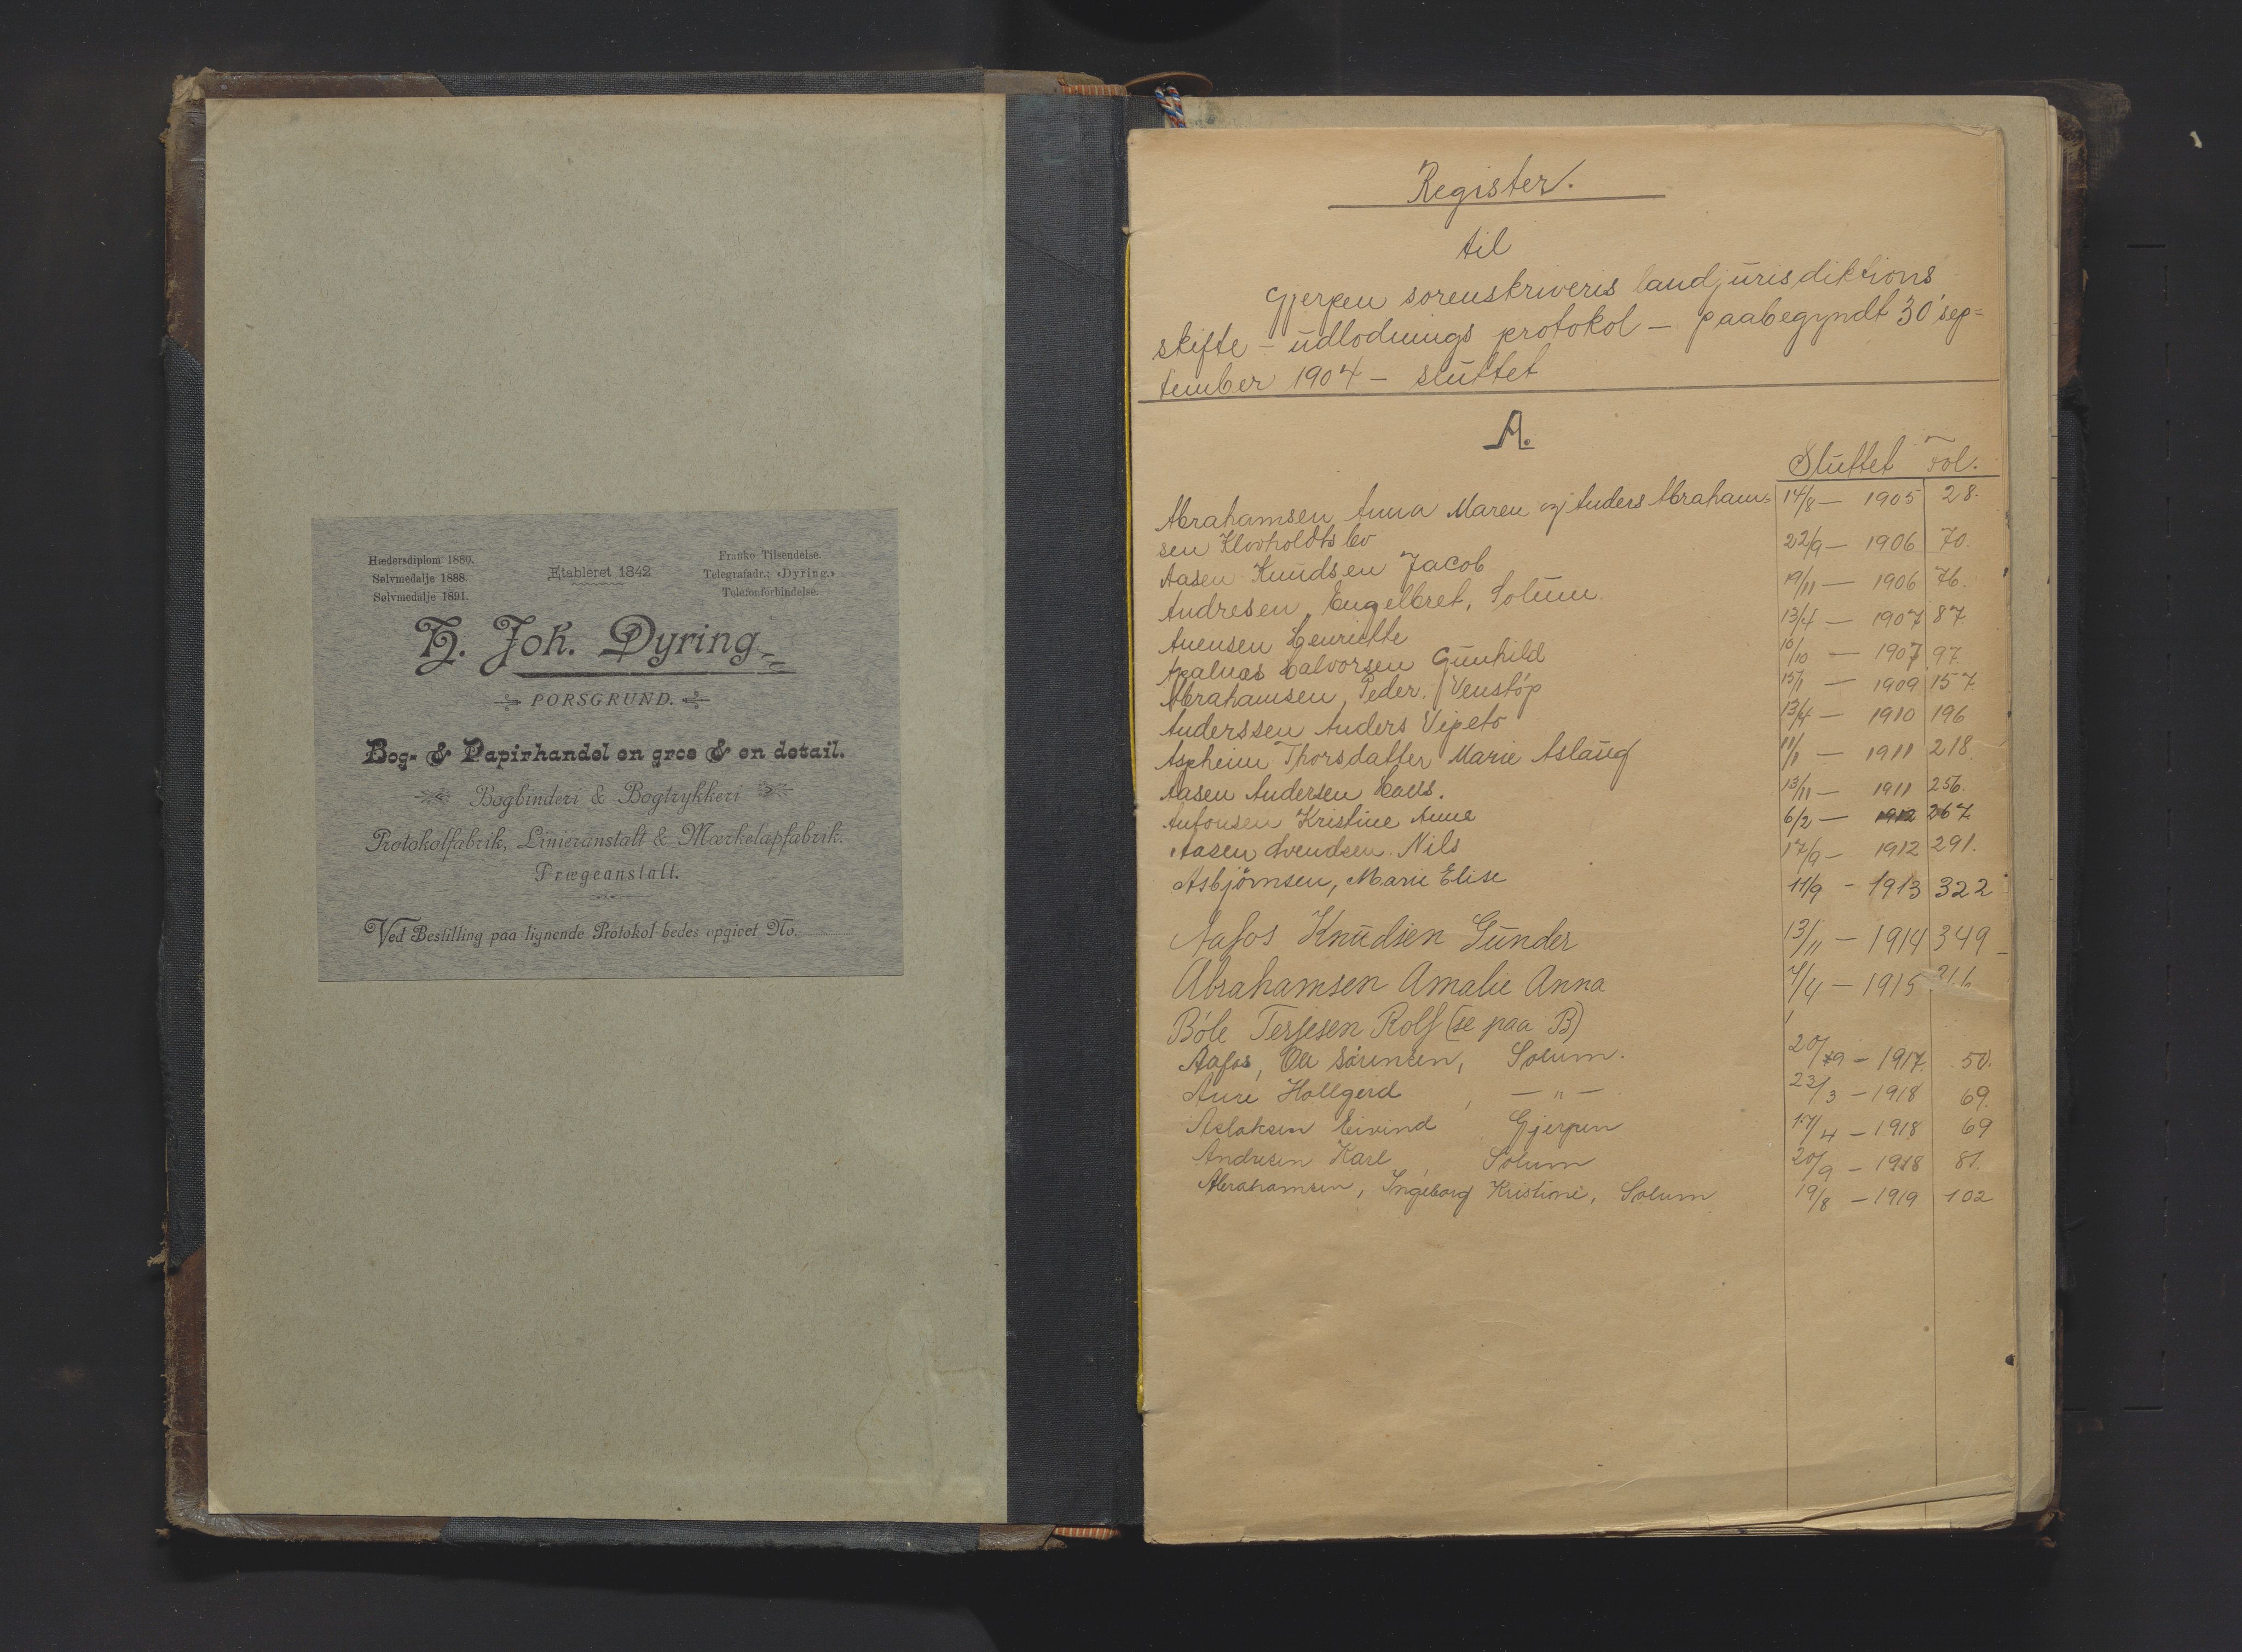 Hædersdiplom 1880.
Sølvmedalje 1888.
Sølvmedalje 1891.
Etableret 1842
Franko Tilsendelse.
Telegrafadr.: «Dyring.»
Telefonforbindelse.
H. Joh. Dyring
PORSGRUND.
Bog- & Papirhandel en gros & en detail.
Bogbinderi & Bogtrykkeri
Protokolfabrik, Linieranstalt & Mærkelapfabrik.
Prægeanstalt.
Ved Bestilling paa lignende Protokol bedes opgivet No.
Register.
til
Gjerpen sorenskriveris landjurisdiktions
skifte - udlodnings protokol - paabegyndt 30 sep=
tember 1904 - sluttet
A.
Sluttet Fol.
Abrahamsen Anna Maren og Anders Abraham= 14/8 - 1905 28.
sen Klovholdts bo
Aasen Knudsen Jacob 22/9 - 1906 70.
Andresen, Engelbret, Solum. 19/11 - 1906 76.
Anensen Henriette 13/4 - 1907 87
Apalnæs Halvorsen Gunhild 10/10 - 1907 97
Abrahamsen, Peder, Venstøp 15/1 - 1909 157
Anderssen Anders Vipeto 13/4 - 1910 196
Aspheim Thorsdatter Marie Aslaug 11/1 - 1911 218
Aasen Andersen Hans. 13/11 - 1911 256.
Antonsen Kristine Anne 6/2 - 1912 267
Aasen Svendsen Nils 17/9 - 1912 291.
Asbjørnsen, Marie Elise 11/9 - 1913 322
Aafos Knudsen Gunder 13/11 - 1914 349
Abrahamsen Amalie Anna 7/4 - 1915
Bøle Terjesen Rolf (se paa B)
Aafos, Ole Sørensen, Solum. 20/9 - 1917. 50.
Aure Hallgerd, - " - 23/3 - 1918 69.
Aslaksen Eivind Gjerpen 17/4 - 1918 69
Andresen Karl, Solum 20/9 - 1918 81.
Abrahamsen, Ingeborg Kristine, Solum 19/8 - 1919 102